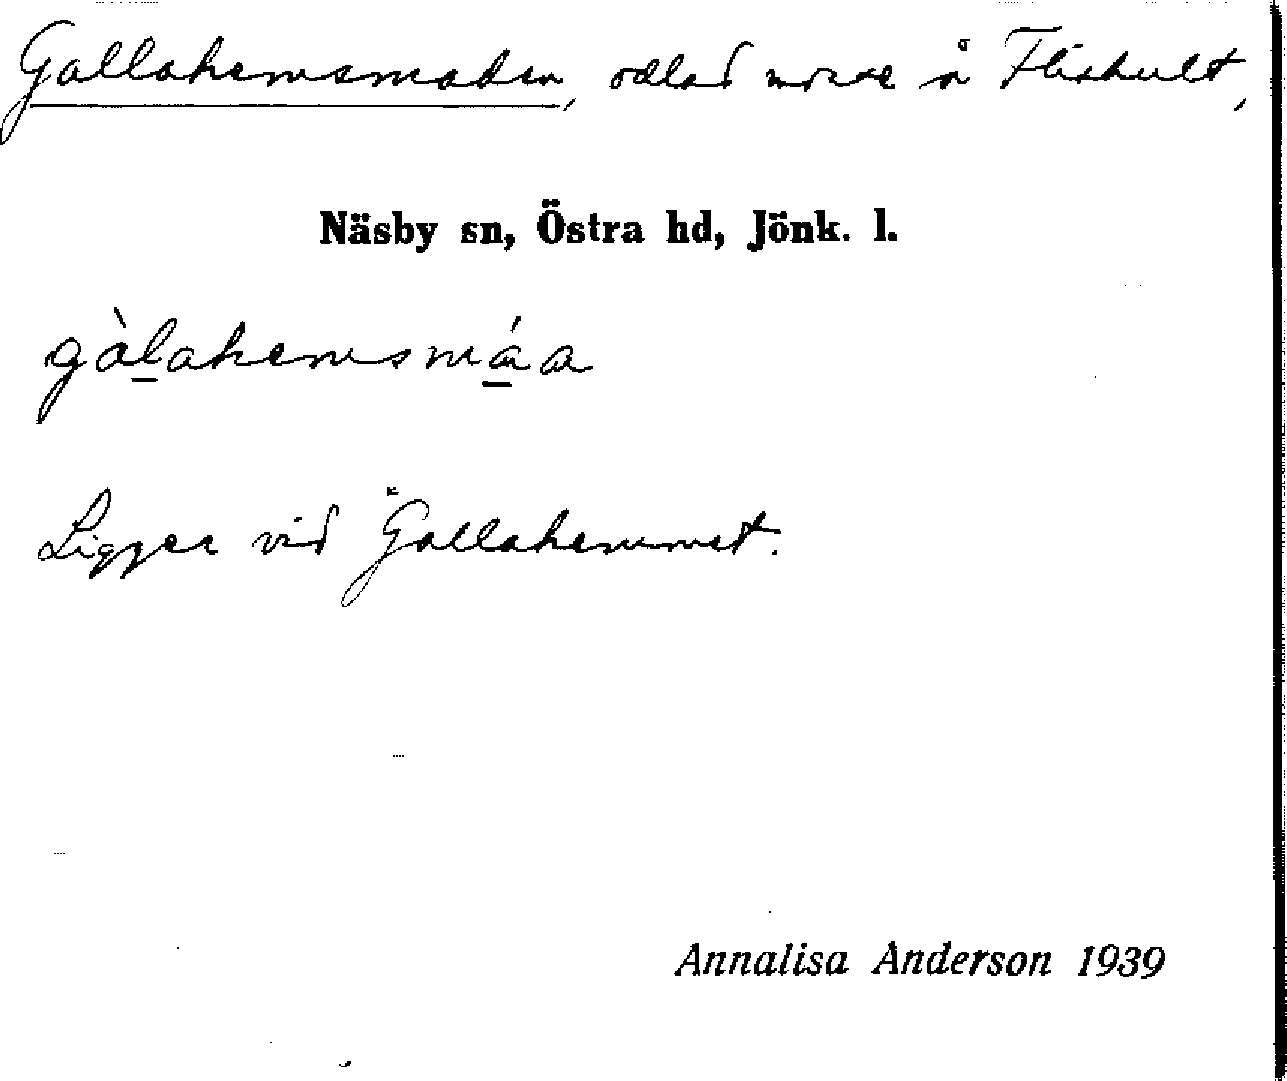 Gallahemsmaden, odlad mosse å Fliskult,
Näsby sn, Östra hd, Jönk. l.
gàlahemsmáa
Ligger vid Gallahemmet.
Annalisa Anderson 1939